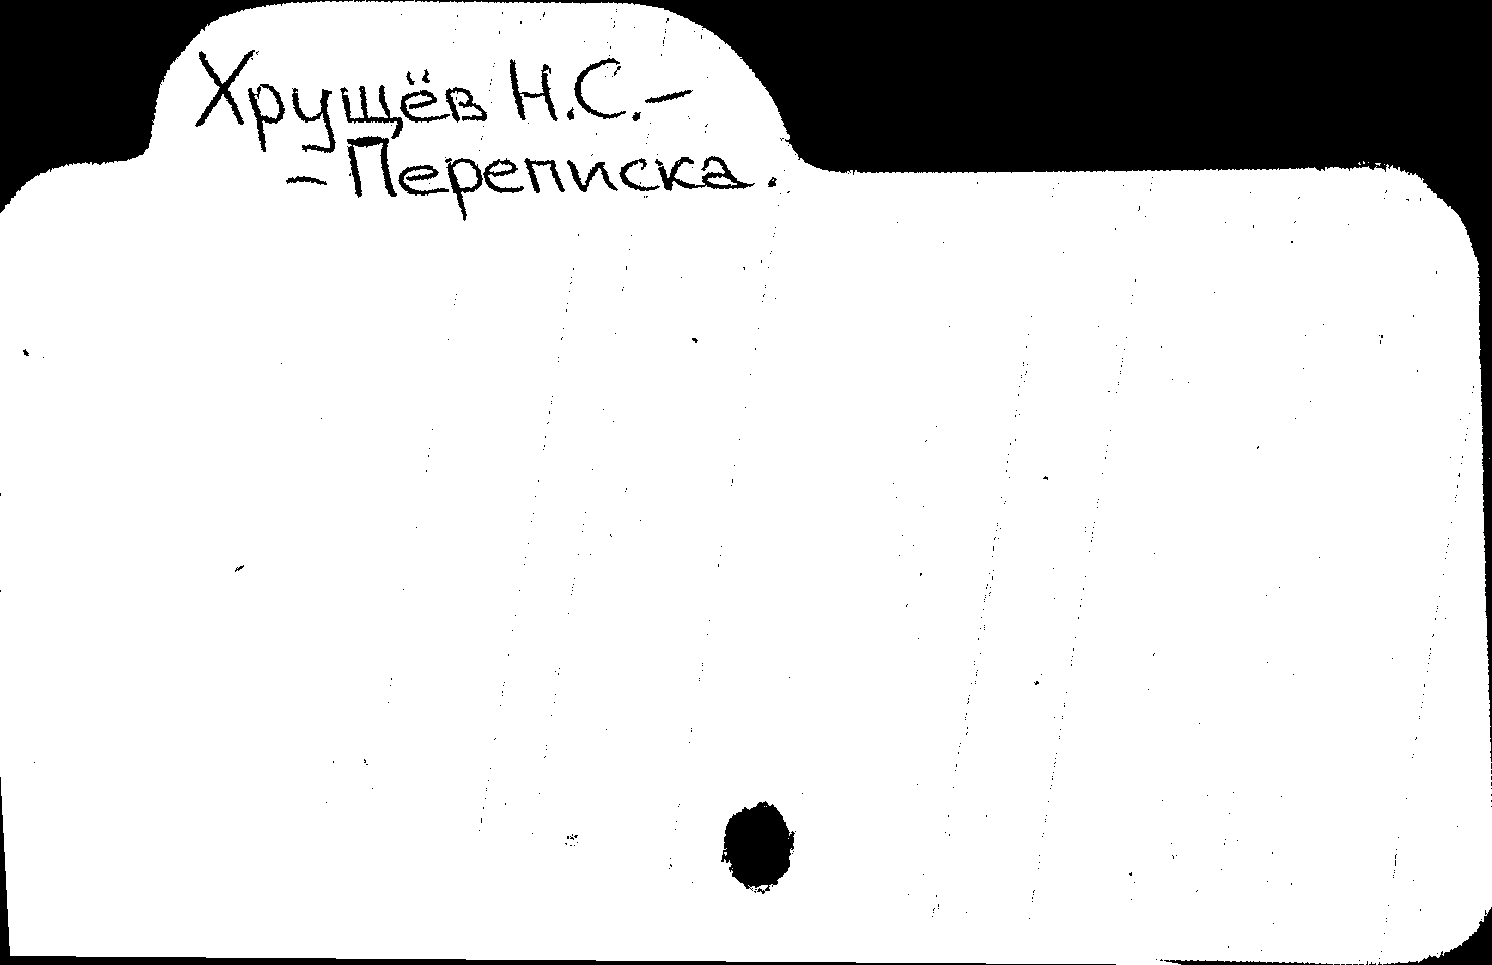 Хрущёв Н.С. –
– Переписка.